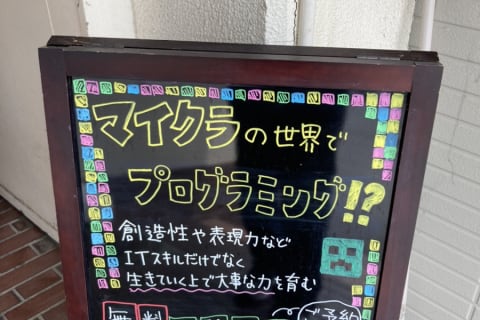 マイクラの世界で
プログラミング!?
創造性や表現力など
ITスキルだけでなく
生きていく上で大事な力を育む
無料
ご予約